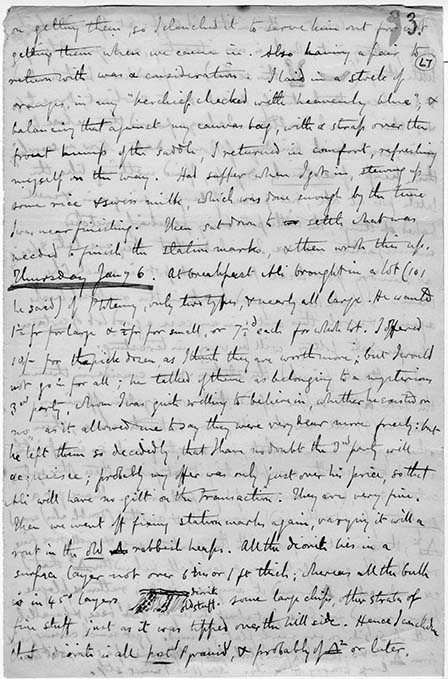 33
on getting them, so I clenched it to serve him out for not
getting them when we came in. Also having a pair to
(47
return with was a consideration. I laid in a stock of
oranges, in my "kerchief, checked with heavenly blue", &
balancing that against my canvas bag, with a strap over the
front hump of the saddle, I returned in comfort, refreshing
myself on the way. Had supper when I got in, stewing up
some rice & swiss milk, which was done enough by the time
I was near finishing. Then sat down to settle what was
needed to finish the station marks, & then wrote this up.
Thursday Jany 6. At breakfast Ali brought in a lot (101
he said) of , only two types, & nearly all large. He wants
1½ pr for large & ½ pr for small, or 7½d each for whole lot. I offered
10/- for the pick dozen as I think they are worth more; but I would
not go in for all; he talked of them as belonging to a mysterious
3rd party, whom I was quite willing to believe in, whether he existed or
no, as it allowed me to say they were very dear more freely: but
he left them so decidedly, that I have no doubt the 3rd party will
acquiesce; probably my offer was only just over his price, so that
Ali will have no gilt on the transaction. They are very fine.
Then we went off fixing station marks again, varying it with a
rout in the old rubbish heaps. All the diorite lies in a
surface layer not over 6 ins or 1 ft thick; whereas all the bulk
is in 45° layers diorite old stuff. some large chips, other strata of
fine stuff just as it was tipped over the hill side. Hence I conclude
that diorite is all post pyramid, & probably of or later.